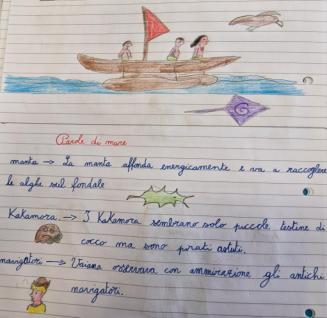 Parole di mare
manta → La manta affonda energicamente e va a raccogliere
le alghe sul fondale
Kakamora. → I Kakamora sembrano solo piccole testine di
cocco ma sono pirati astuti.
navigatori → Vaiana osservava con ammirazione gli antichi
navigatori.